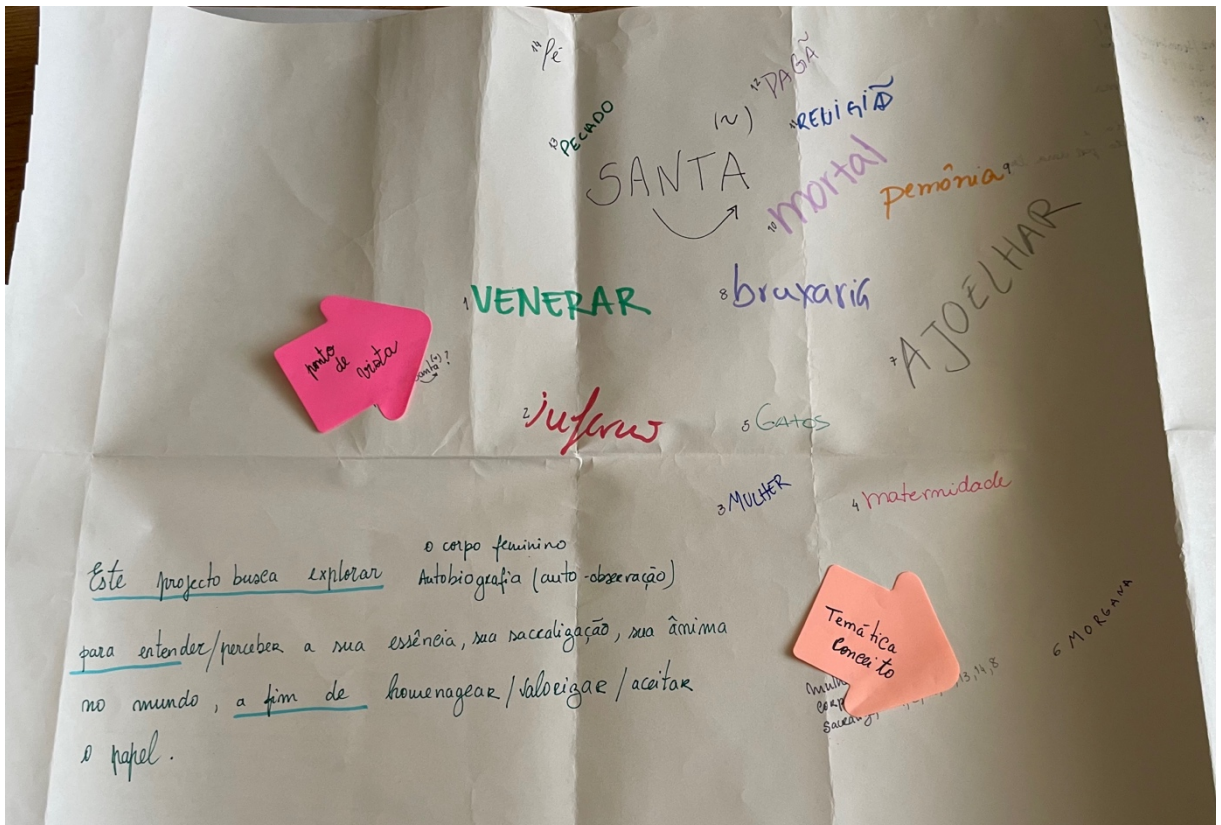 14 fé
12 PAGÃ
13 PECADO
(~)
11 RELIGIÃO
SANTA
10 mortal
pemônia 9
AJOELHAR
7
1 VENERAR
8 bruxaria
ponto
de
vista
santa(~)?
2 inferno
5 GATOS
3 MULHER
4 maternidade
o corpo feminino
Este projecto busca explorar Autobiografia (auto-observação)
para entender/perceber a sua essência, sua sacralização, sua ânima
no mundo, a fim de homenagear/valorizar/aceitar
o papel.
Temática
conceito
6 MORGANA
13, 14, 8